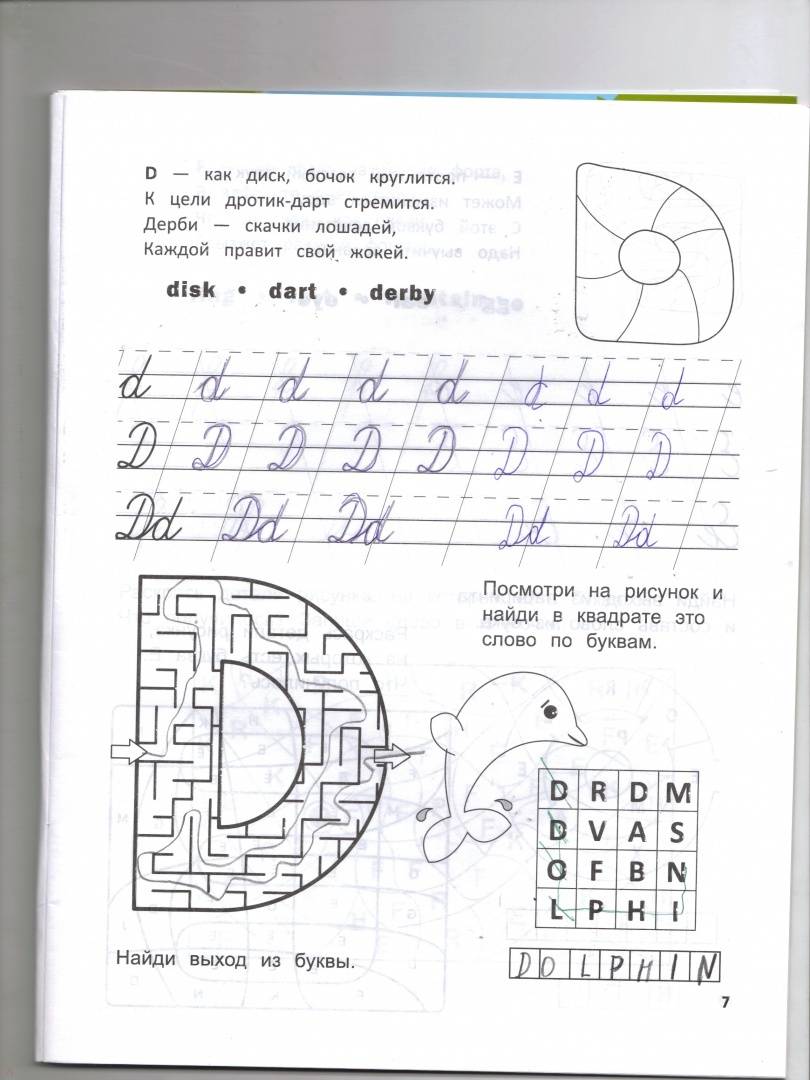 D — как диск, бочок круглится.
К цели дротик-дарт стремится.
Дерби — скачки лошадей,
Каждой правит свой жокей.
disk • dart • derby
d d d d d d d d
D D D D D D D D
Dd Dd Dd Dd Dd
Посмотри на рисунок и
найди в квадрате это
слово по буквам.
D R D M
D V A S
O F B N
L P H I
Найди выход из буквы.
DOLPHIN
7